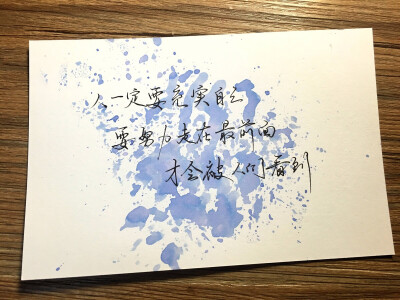 人一定要充实自己
要努力走在最前面
才会被人们看到